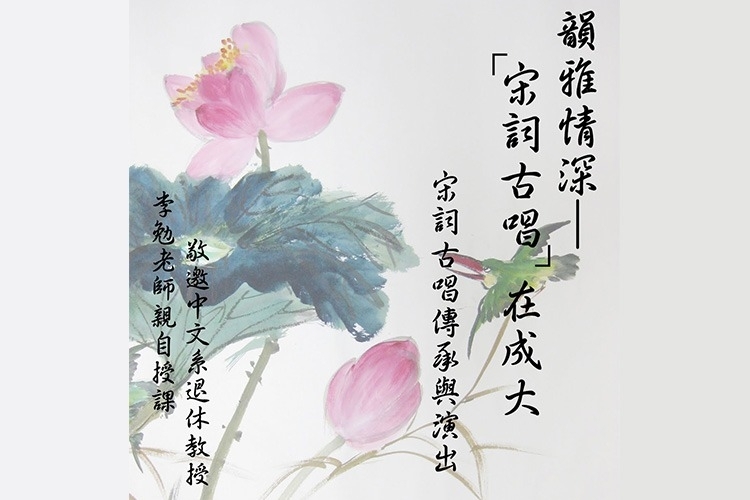 韻雅情深—
「宋詞古唱」在成大
宋詞古唱傳承與演出
敬邀中文系退休教授
李勉老師親自授課